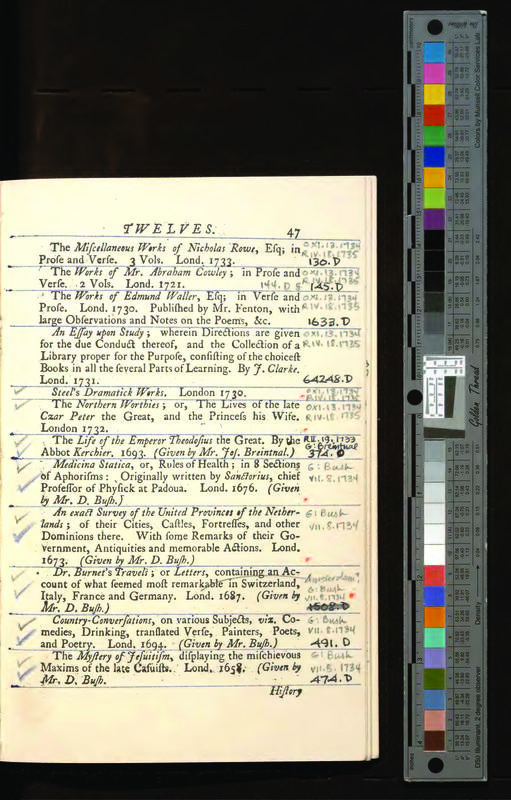 TWELVES. 47
The Miſcellaneous Works of Nicholas Rowe, Eſq; in OXI.13.1734
Proſe and Verſe. 3 Vols. Lond. 1733. RIV.18.1735 130.D
The Works of Mr. Abraham Cowley; in Proſe and OXI.13.1734
Verſe. 2 Vols. Lond. 1721. 144.D & 145.D RIV.18.1735
The Works of Edmund Waller, Eſq; in Verſe and OXI.13.1734
Proſe. Lond. 1730. Publiſhed by Mr. Fenton, with RIV.18.1735
large Obſervations and Notes on the Poems, &c. 1633.D
An Eſſay upon Study; wherein Directions are given OXI.13.1734
for the due Conduct thereof, and the Collection of a RIV.18.1735
Library proper for the Purpoſe, conſiſting of the choiceſt
Books in all the ſeveral Parts of Learning. By J. Clarke.
Lond. 1731. 64248.D
Steel's Dramatick Works. London 1730. OXI.13.1734 RIV.18.1735
The Northern Worthies; or, The Lives of the late OXI.13.1734
Czar Peter the Great, and the Princeſs his Wife. RIV.18.1735
London 1732.
The Life of the Emperor Theodoſus the Great. By the RII.19.1733
Abbot Kerchier. 1693. (Given by Mr. Joſ. Breintnal.) G: Breintnal 374.D
Medicina Statica, or, Rules of Health; in 8 Sections G: Bush
of Aphoriſms: Originally written by Sanctorius, chief VII.8.1734
Profeſſor of Phyſick at Padoua. Lond. 1676. (Given
by Mr. D. Buſh.)
An exact Survey of the United Provinces of the Nether- G: Bush
lands; of their Cities, Caſtles, Fortreſſes, and other VII.8.1734
Dominions there. With ſome Remarks of their Go-
vernment, Antiquities and memorable Actions. Lond.
1673. (Given by Mr. D. Buſh.)
Dr. Burnet's Travels; or Letters, containing an Ac- Amsterdam
count of what ſeemed moſt remarkable in Switzerland, G: Bush
Italy, France and Germany. Lond. 1687. (Given by VII.8.1734
Mr. D. Buſh.) 1508.D
Country-Converſations, on various Subjects, viz. Co- G: Bush
medies, Drinking, tranſlated Verſe, Painters, Poets, VII.8.1734
and Poetry. Lond. 1694. (Given by Mr. Buſh.) 491.D
The Myſtery of Jeſuitiſm, diſplaying the miſchievous G: Bush
Maxims of the late Caſuiſts. Lond. 1658. (Given by VII.8.1734
Mr. D. Buſh. 474.D
Hiſtory
Colors by Munsell Color Services Lab
Golden Thread
Density
D50 Illuminant, 2 degree observer